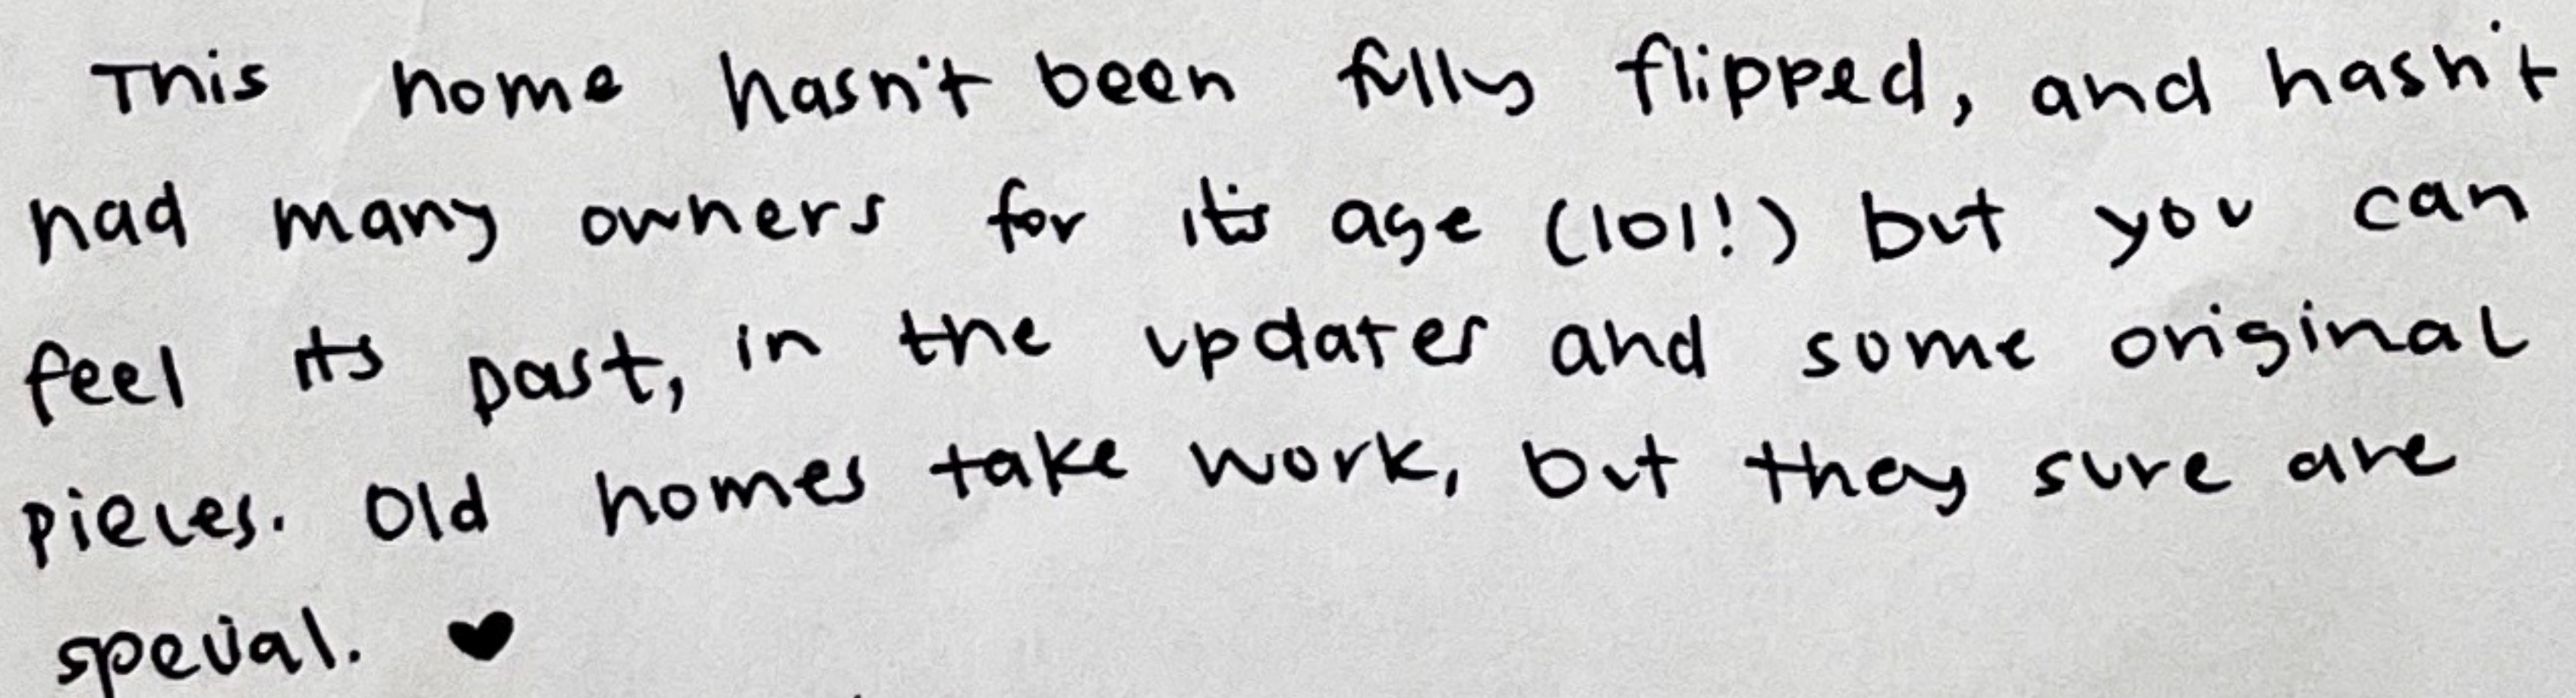 This home hasn't been fully flipped, and hasn't
had many owners for its age (101!) but you can
feel its past, in the updates and some original
pieces. Old homes take work, but they sure are
special. ♥